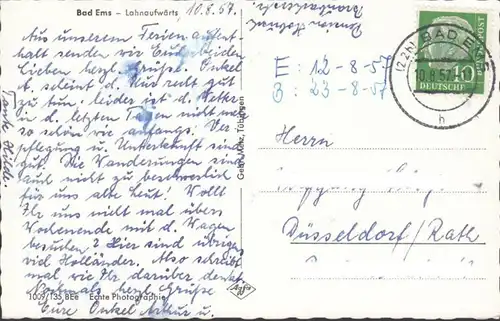 Bad Ems - Lahnaufwärts 10.8.57.
Aus unserem Ferienaufent-
halt senden wir Euch beiden
Lieben herzl. Grüße. Onkel
A. scheint d. Aus recht gut
zu tun, leider ist d. Wetter
in d. letzten Tagen nicht mehr
so schön wie anfangs. Ver-
pflegung u. Unterkunft sind
gut. Die Wanderungen sind
nicht zu beschwerlich
für uns alte Leut! Wollt
Ihr uns nicht mal übers
Wochenende mit d. Wagen
besuchen? Hier sind übrigens
viel Holländer. Also schreibt
mal wie Ihr darüber denkt.
Nochmals herzl. Grüße
Eure Onkel Arthur u.
Tante Hilde.
1009/135 BEe Echte Photographie
Gebr. Metz, Tübingen
E: 12-8-57
B: 23-8-57
(22b) BAD EMS
10.8.57
h
10
DEUTSCHE POST
Herrn
Düsseldorf/Rath